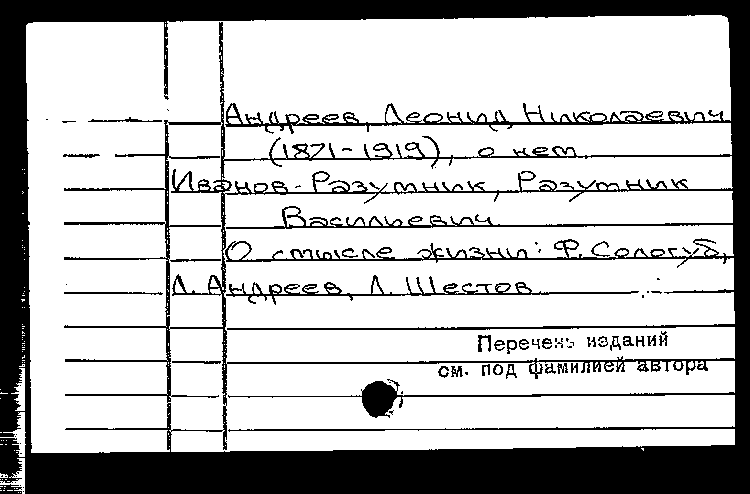 Андреев, Леонид Николаевич
(1871-1919), о нем
Иванов-Разумник, Разумник
Васильевич
О смысле жизни: Ф. Сологуб,
Л. Андреев, Л. Шестов
Перечень изданий
см. под фамилией автора